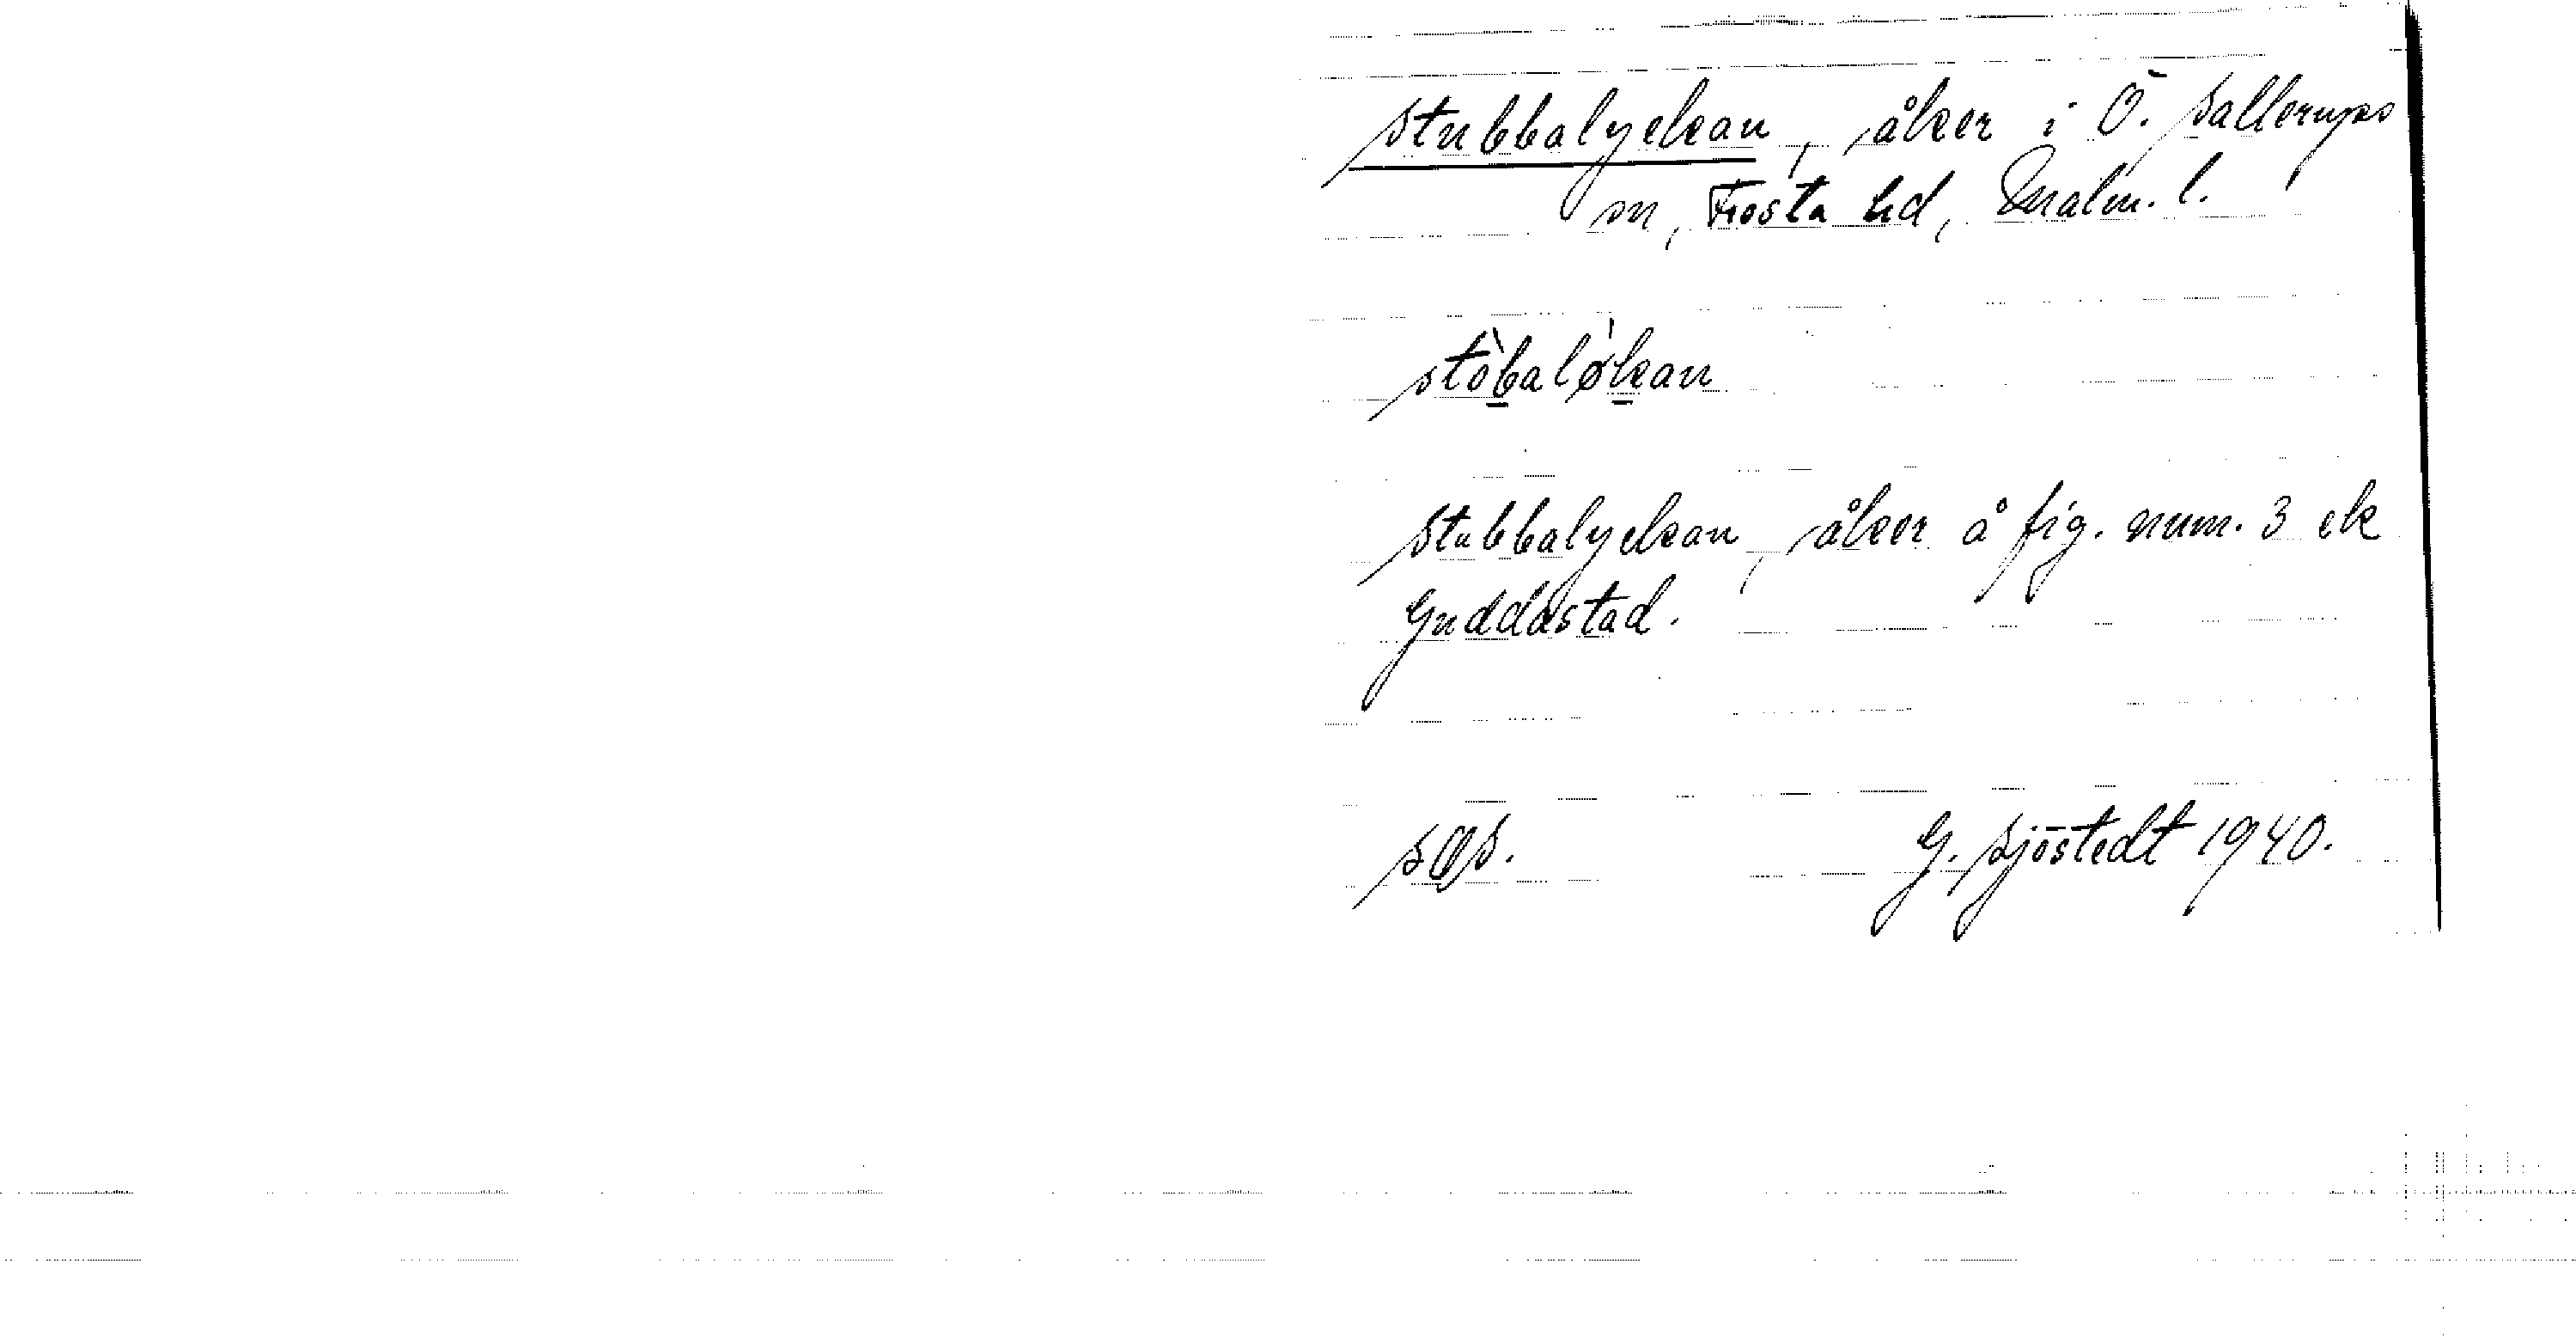 Stubbalyckan, åker i Ö. Sallerups
sn, Frosta hd, Malm. l.
stòbaløkan
Stubbalyckan, åker å fig. num. 3 ek
Guddastad.
G. Sjöstedt 1940.